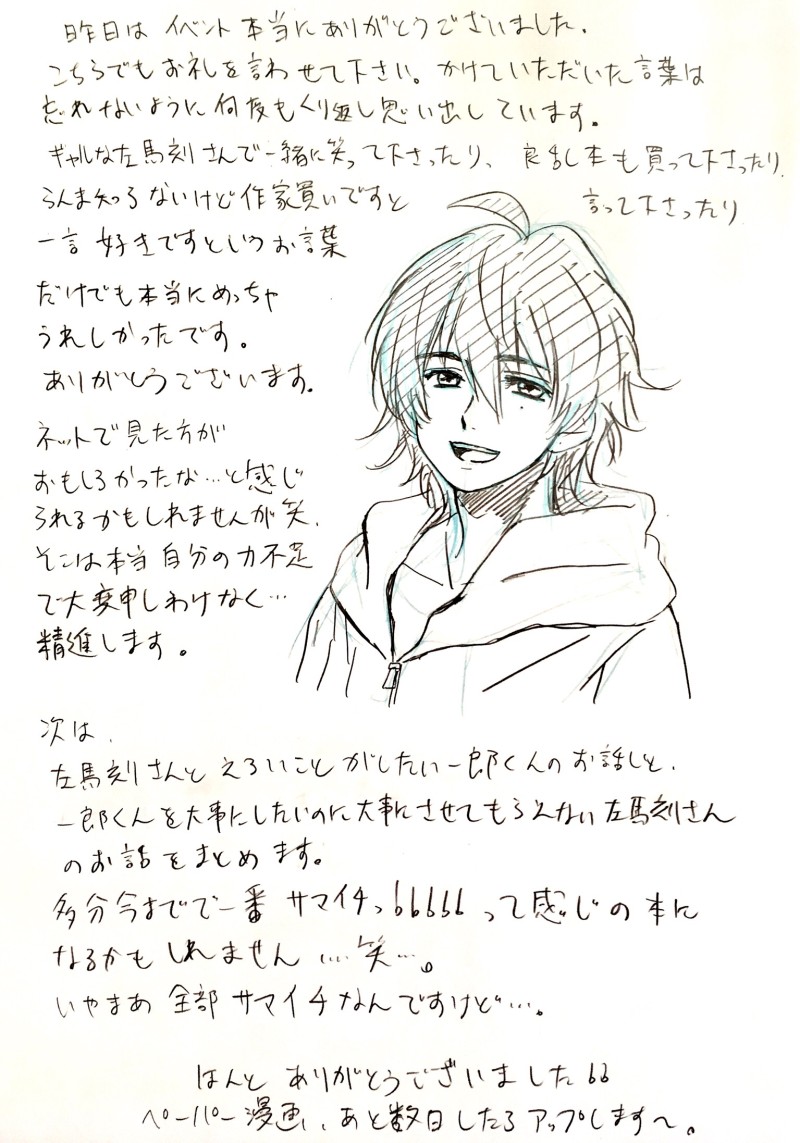 昨日は イベント 本当に ありがとうございました.
こちらでも お礼を言わせて下さい。かけていただいた言葉は
忘れないように 何度もくり返し思い出しています。
ギャルな左馬刻さんで一緒に笑って下さったり、良乱本も買って下さったり、
らんま知らないけど作家買いですと 言って下さったり
一言 好きですというお言葉
だけでも本当にめっちゃ
うれしかったです。
ありがとうございます.
ネットで見た方が
おもしろかったな…と感じ
られるかもしれませんが笑.
そこは本当 自分の力不足
で大変申しわけなく…
精進します。
次は.
左馬刻さんと えろいこと がしたい一郎くんの お話しと.
一郎くんを大事にしたいのに大事にさせてもらえない左馬刻さん
のお話をまとめます。
多分今までで一番 サマイチっ66666 って感じの本に
なるかもしれません …笑…。
いやまあ 全部 サマイチなんですけど…。
ほんと ありがとうございました66
ペーパー漫画、あと数日したらアップします〜。